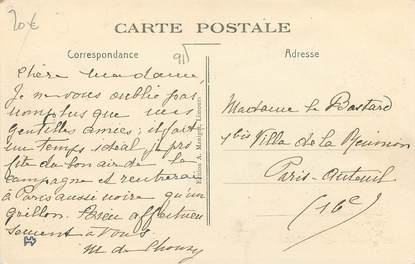 20€
CARTE POSTALE
Correspondance
Adresse
91
Chère Madame,
Je ne vous oublie pas
non plus que mes
gentilles amies; il fait
un temps idéal je pro
fite du bon air de la
campagne et rentrerai
à Paris aussi noire qu'un
grillon. Bien affectueu
sement à vous
M de
Madame le Bastard
1 bis Villa de la Réunion
Paris-Auteuil
(16e)